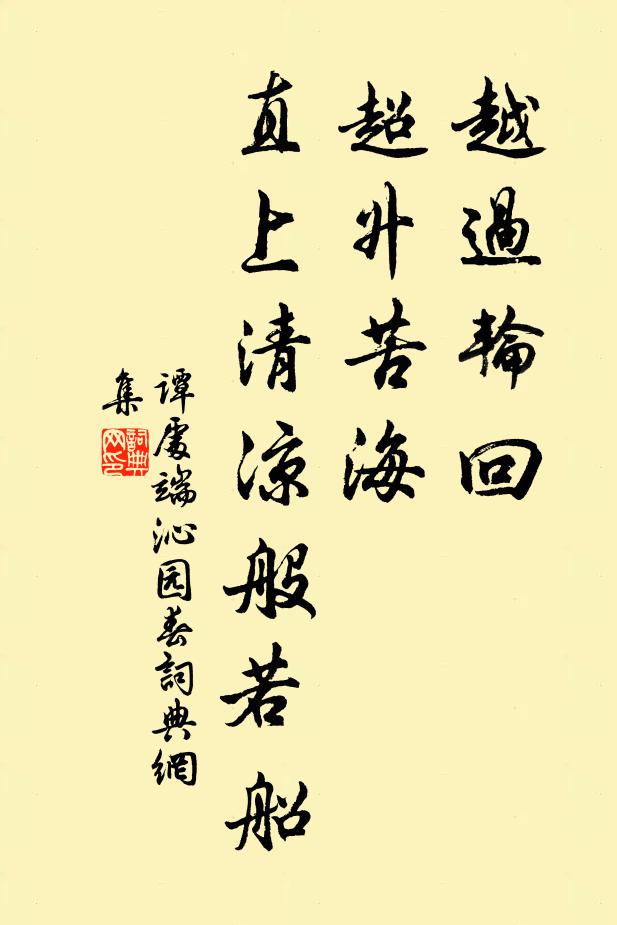 越過輪回
超升苦海
直上清涼般若船
谭處端沁园春詞典網
集
詞典
网印